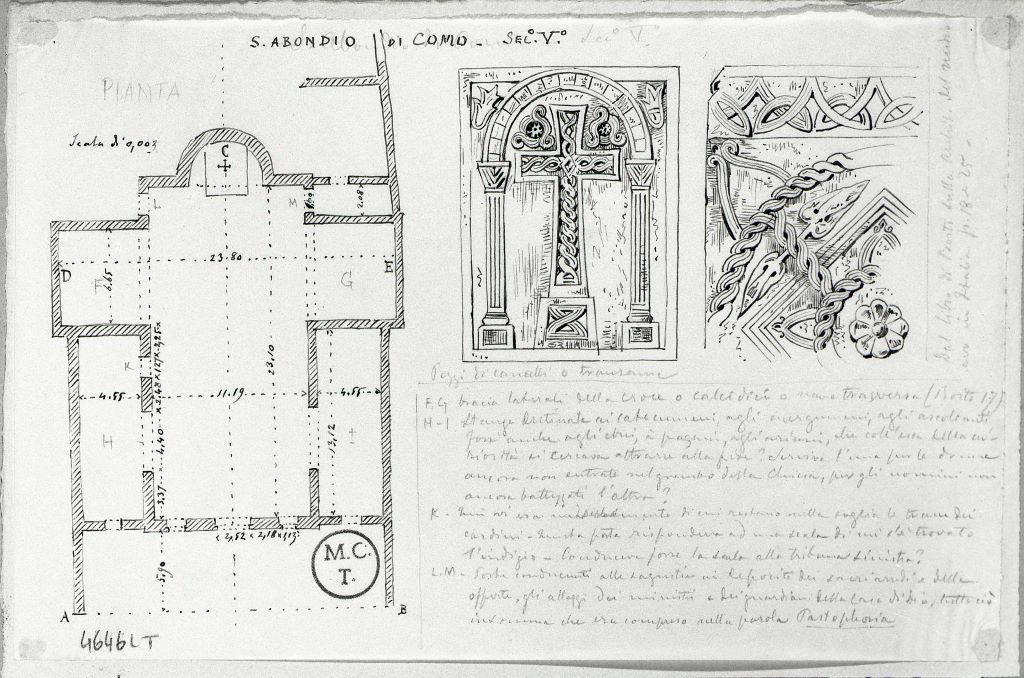 S. ABONDIO DI COMO - SEC.º V.º
PIANTA
Scala di 0,003
C
L
M
2.08
D
F
6.65
23.80
G
E
K
4.55
11.19
4.55
23,10
2,48
4,40
3,37
13,12
H
I
2,52
2,18
1,13
5.90
A
B
M.C.
T.
4646LT
Pezzi di cancelli o transenne
F.G braccia laterali della Croce o calcidici o nave trasversa (Boito 17)
H-I Stanze destinate ai catecumeni, agli energumeni, agli ascoltanti
fors'anche agli ebrei, a' pagani, agli ariani, che coll'esca della cu-
riosità si cercava attrarre alla fede? Serviva l'una per le donne
ancora non entrate nel grembo della Chiesa, per gli uomini non
ancora battezzati l'altra?
K - Qui vi era di cui restano nella soglia le tracce dei
cardini - Questa porta rispondeva ad una scala di cui s'è trovato
l'indizio - Conduceva forse la scala alla tribuna sinistra?
L.M - Porte conducenti alle sagrestie ai depositi dei sacri arredi e delle
offerte, gli alloggi dei ministri e dei guardiani della Casa di Dio, tutto ciò
insomma che era compreso nella parola Pastophoria
Dal libro di Boito sulla archit. del medio
evo in Italia p. 18 e 20 -